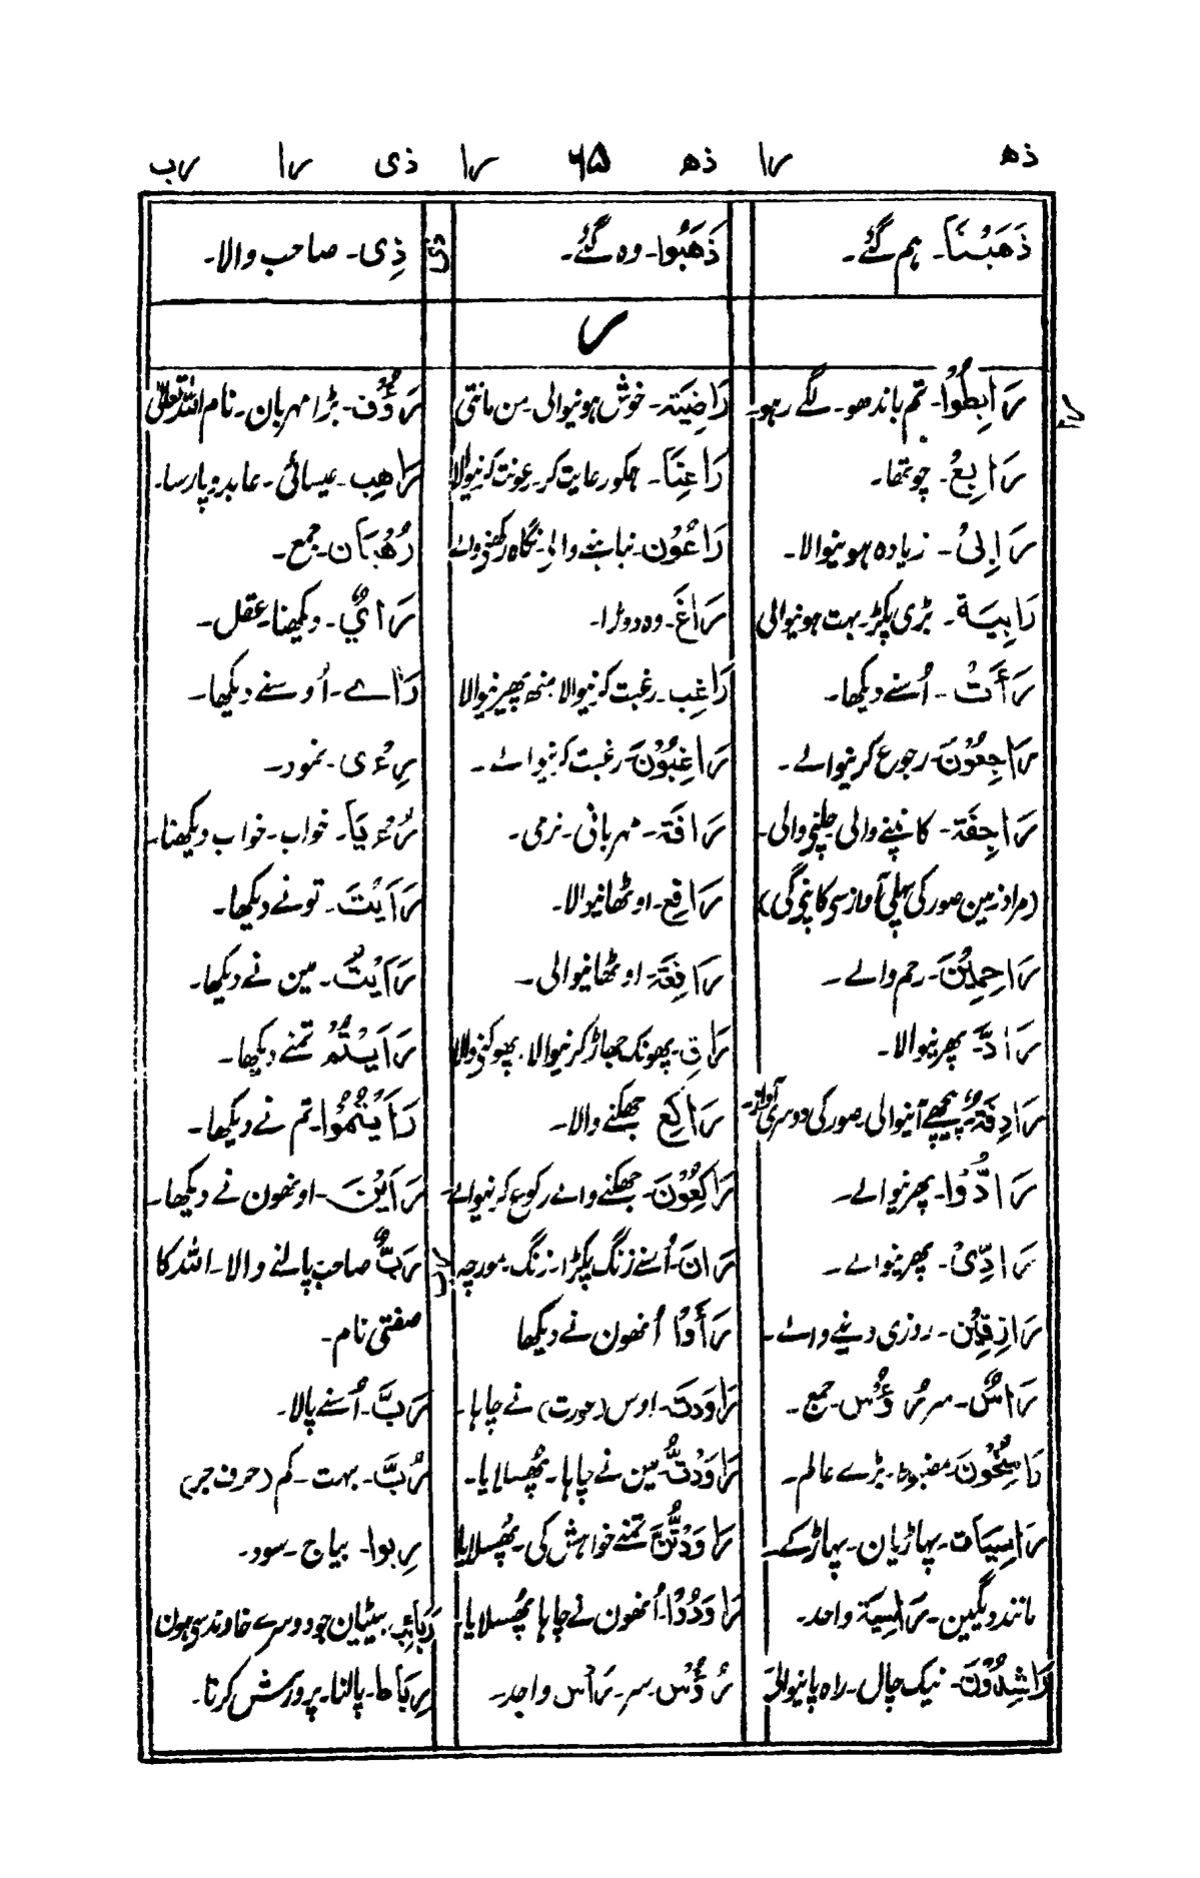 ذھ را ذھ ۶۵ را ذی را رب
ذَھَبْنَا۔ ہم گئے۔
ذَھَبُوا۔ وہ گئے۔
ذی
ذِی۔ صاحب والا۔
ر
را
رَابِطُوْا۔ تم باندھو۔ لگے رہو۔
رَابِعُ۔ چوتھا۔
رَابِیُ۔ زیادہ ہونیوالا۔
رَابِیَة۔ بڑی پکڑ۔ بہت ہونیوالی
رَأَتْ۔ اُسنے دیکھا۔
رَاجِعُوْنَ۔ رجوع کرنیوالے۔
رَاجِفَة۔ کانپنے والی۔ ہلنے والی۔
(مراد زمین صور کی پہلی آواز سے کانپے گی)
رَاحِمِیْنَ۔ رحم والے۔
رَادَّ۔ پھرنیوالا۔
رَادِفَةٌ۔ پیچھے آنیوالی۔ صور کی دوسری آواز۔
رَادُّوْا۔ پھرنیوالے۔
رَادِّیْ۔ پھرنیوالے۔
رَازِقِیْن۔ روزی دینے والے۔
رَاسٌ۔ سر رُءُوْس۔ جمع۔
رَاسِخُوْنَ۔ مضبوط۔ بڑے عالم۔
رَاسِیَات۔ پہاڑیان۔ پہاڑ کے۔
مانند دیگین۔ رَاسِیَة واحد۔
رَاشِدُوْنَ۔ نیک چال۔ راہ پانیوالے
رَاضِیَة۔ خوش ہونیوالی۔ من مانتی
رَاعِنَا۔ ہمکو رعایت کر۔ رعونت کرنیوالا
رَاعُوْن۔ نباہنے والے۔ نگاہ رکھنے والے
رَاغَ۔ وہ دوڑا۔
رَاغِب۔ رغبت کرنیوالا منھ پھیرنیوالا
رَاغِبُوْنَ۔ رغبت کرنیوالے۔
رَافَة۔ مہربانی۔ نرمی۔
رَافِع۔ اوٹھانیوالا۔
رَافِعَة۔ اوٹھانیوالی۔
رَاقِ۔ پھونک جھاڑ کرنیوالا۔ پھوکنے والا
رَاکِع جھکنے والا۔
رَاکِعُوْنَ۔ جھکنے والے رکوع کرنیوالے۔
رَانَ۔ اُسنے زنگ پکڑا۔ زنگ۔ مورچہ
رَأَوْا اُنھون نے دیکھا
رَاوَدَتْ۔ اوس (عورت) نے چاہا۔
رَاوَدْتُّ۔ مین نے چاہا۔ پُھسلایا۔
رَاوَدْتُّنَّ تمنے خواہش کی۔ پُھسلایا
رَاوَدُوْا۔ اُنھون نے چاہا پُھسلایا۔
رُءُوْس۔ سر۔ رَأس واحد۔
رَءُوْف۔ بڑا مہربان۔ نام اللہ تعالیٰ
رَاھِب۔ عیسائی۔ عابد و پارسا۔
رُھْبَان۔ جمع۔
رَایٌ۔ دیکھنا۔ عقل۔
رَاٰے۔ اُوسنے دیکھا۔
رِءْی۔ نمود۔
رُءْیَا۔ خواب۔ خواب دیکھنا۔
رَاَیْتَ۔ تونے دیکھا۔
رَاَیْتُ۔ مین نے دیکھا۔
رَاَیْتُمْ تمنے دیکھا۔
رَاَیْتُمُوْا۔ تم نے دیکھا۔
رَاَیْنَ۔ اونھون نے دیکھا۔
رب
رَبٌّ صاحب پالنے والا۔ اللہ کا
صفتی نام۔
رَبَّ۔ اُسنے پالا۔
رُبَّ۔ بہت۔ کم (حرف جر)
رِبوا۔ بیاج۔ سود۔
رَبَائِب۔ بیٹیان جو دوسرے خاوند سے ہون
رِبَاط۔ پالنا۔ پرورش کرنا۔